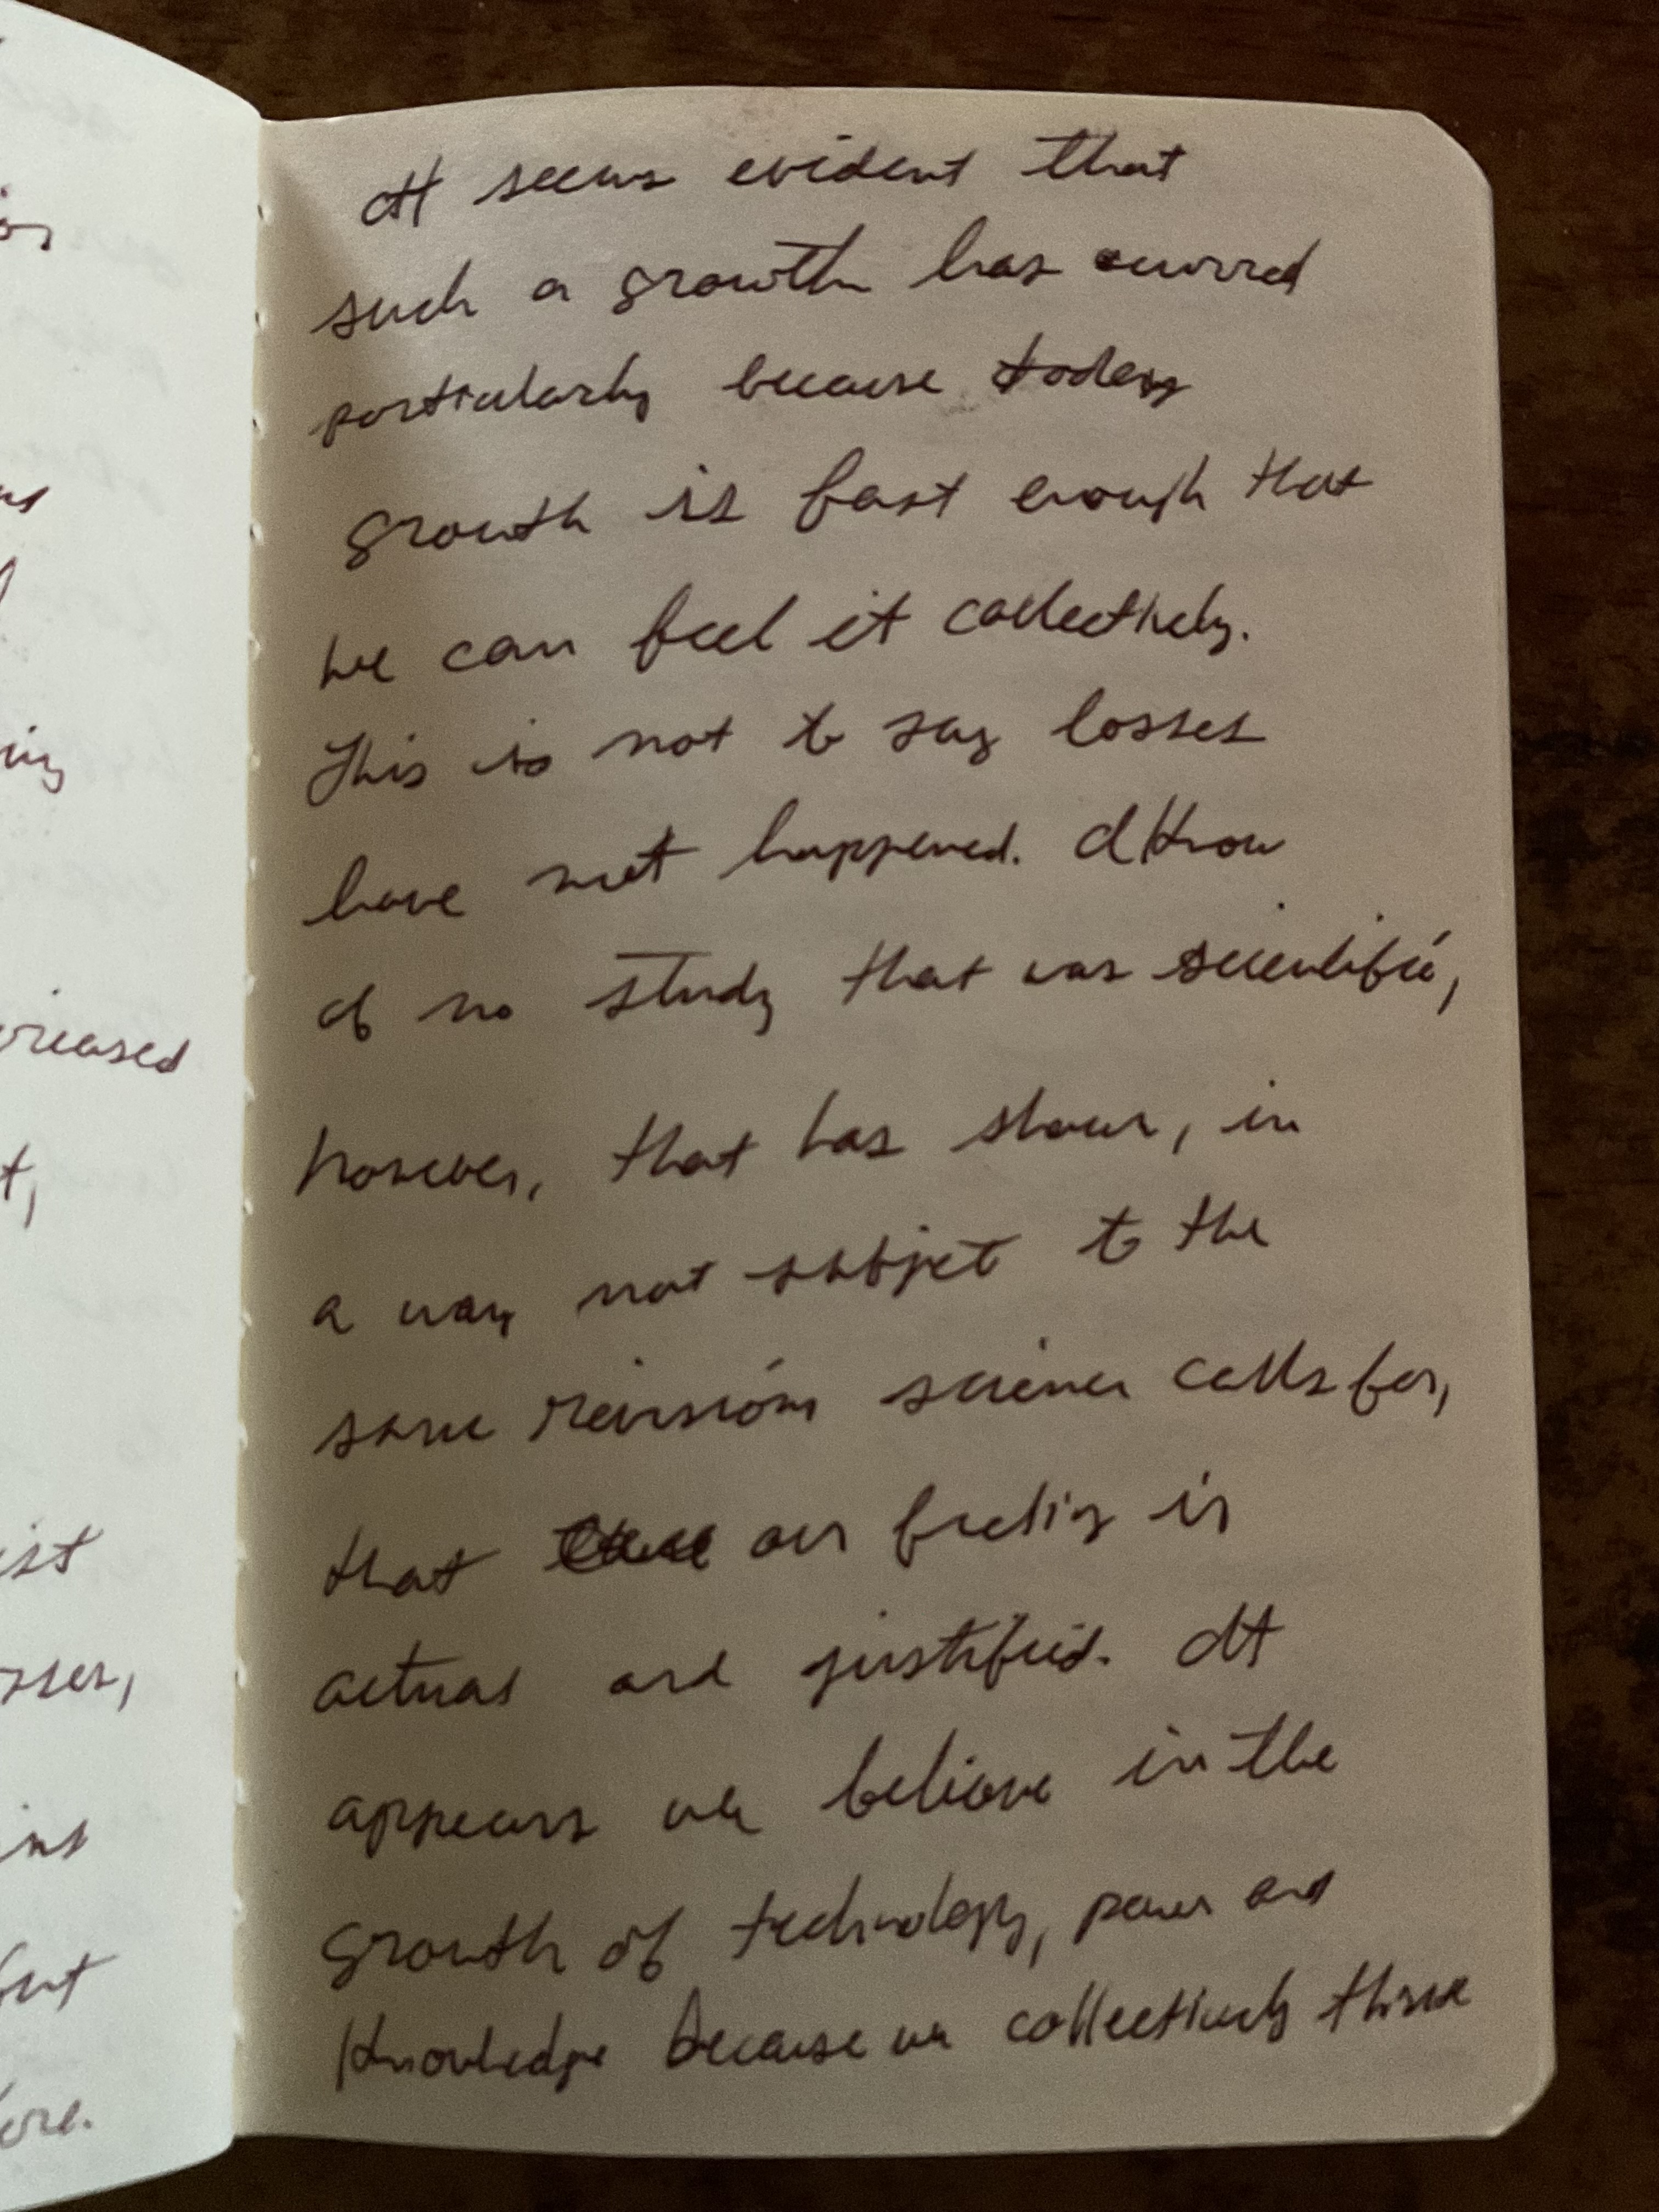 It seems evident that
such a growth has ocurred
particularly because today
growth is fast enough that
we can feel it collectively.
This is not to say losses
have not happened. I know
of no study that was scientific,
however, that has shown, in
a way not subject to the
same revisions science calls for,
that our feeling is
actual and justified. It
appears we believe in the
growth of technology, power and
knowledge because we collectively think
ing
creased
t,
ist
but
ore.